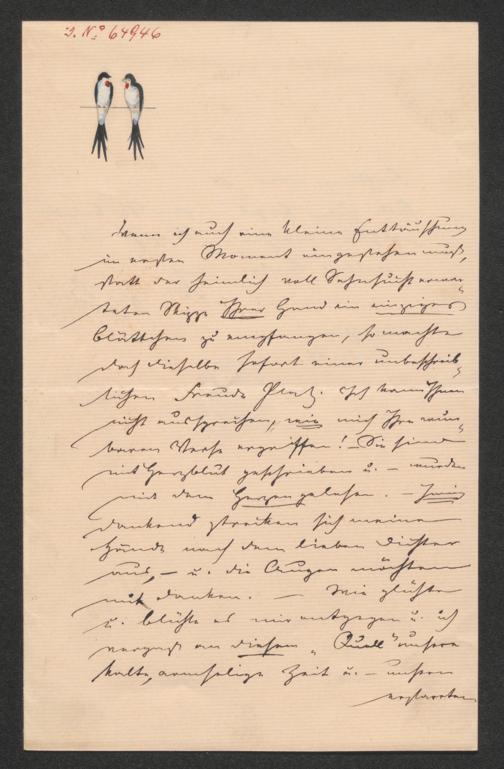 J. No 64946
Wenn ich auch eine kleine Enttäuschung
im ersten Moment eingestehen muß,
statt der heimlich voll Sehnsucht erwar-
teten Skizze Ihrer Hand ein einziges
Blättchen zu empfangen, so machte
doch dieselbe sofort einer unbeschreib-
lichen Freude Platz. Ich kann Ihnen
nicht aussprechen, wie mich Ihre wun-
baren Verse ergriffen! – Sie sind
mit Herzblut geschrieben u. – wurden
mit dem Herzen gelesen. –
dankend strecken sich meine
Hände nach dem lieben Dichter
aus, – u. die Augen möchten
mit danken. – Wie glühte
u. blühte es mir entgegen u. ich
vergaß an diesem „Quell" unsere
kalte, armselige Zeit u. – unsern
erstarrten